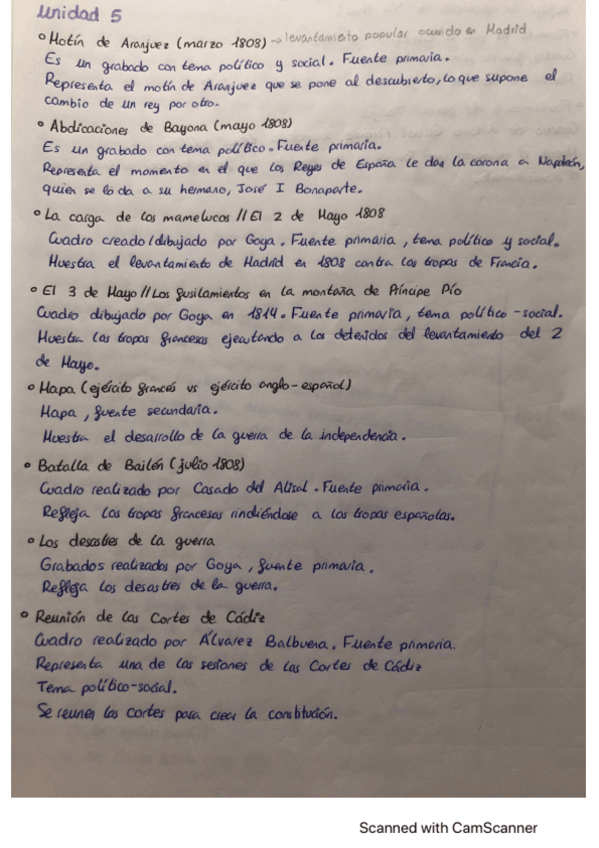 Unidad 5
Motín de Aranjuez (marzo 1808) → levantamiento popular ocurrido en Madrid
Es un grabado con tema político y social. Fuente primaria.
Representa el motín de Aranjuez que se pone al descubierto, lo que supone el
cambio de un rey por otro.
Abdicaciones de Bayona (mayo 1808)
Es un grabado con tema político. Fuente primaria.
Representa el momento en el que los Reyes de España le dan la corona a Napoleón,
quien se lo da a su hermano, José I Bonaparte.
La carga de los mamelucos // El 2 de Mayo 1808
Cuadro creado/dibujado por Goya. Fuente primaria, tema político y social.
Muestra el levantamiento de Madrid en 1808 contra las tropas de Francia.
El 3 de Mayo // Los fusilamientos en la montaña de Príncipe Pío
Cuadro dibujado por Goya en 1814. Fuente primaria, tema político-social.
Muestra las tropas francesas ejecutando a los detenidos del levantamiento del 2
de Mayo.
Mapa (ejército francés vs ejército anglo-español)
Mapa, fuente secundaria.
Muestra el desarrollo de la guerra de la independencia.
Batalla de Bailén (julio 1808)
Cuadro realizado por Casado del Alisal. Fuente primaria.
Refleja las tropas francesas rindiéndose a las tropas españolas.
Los desastres de la guerra
Grabados realizados por Goya, fuente primaria.
Refleja los desastres de la guerra.
Reunión de las Cortes de Cádiz
Cuadro realizado por Álvarez Balbuena. Fuente primaria.
Representa una de las sesiones de las Cortes de Cádiz
Tema político-social.
Se reunen las cortes para crear la constitución.
Scanned with CamScanner